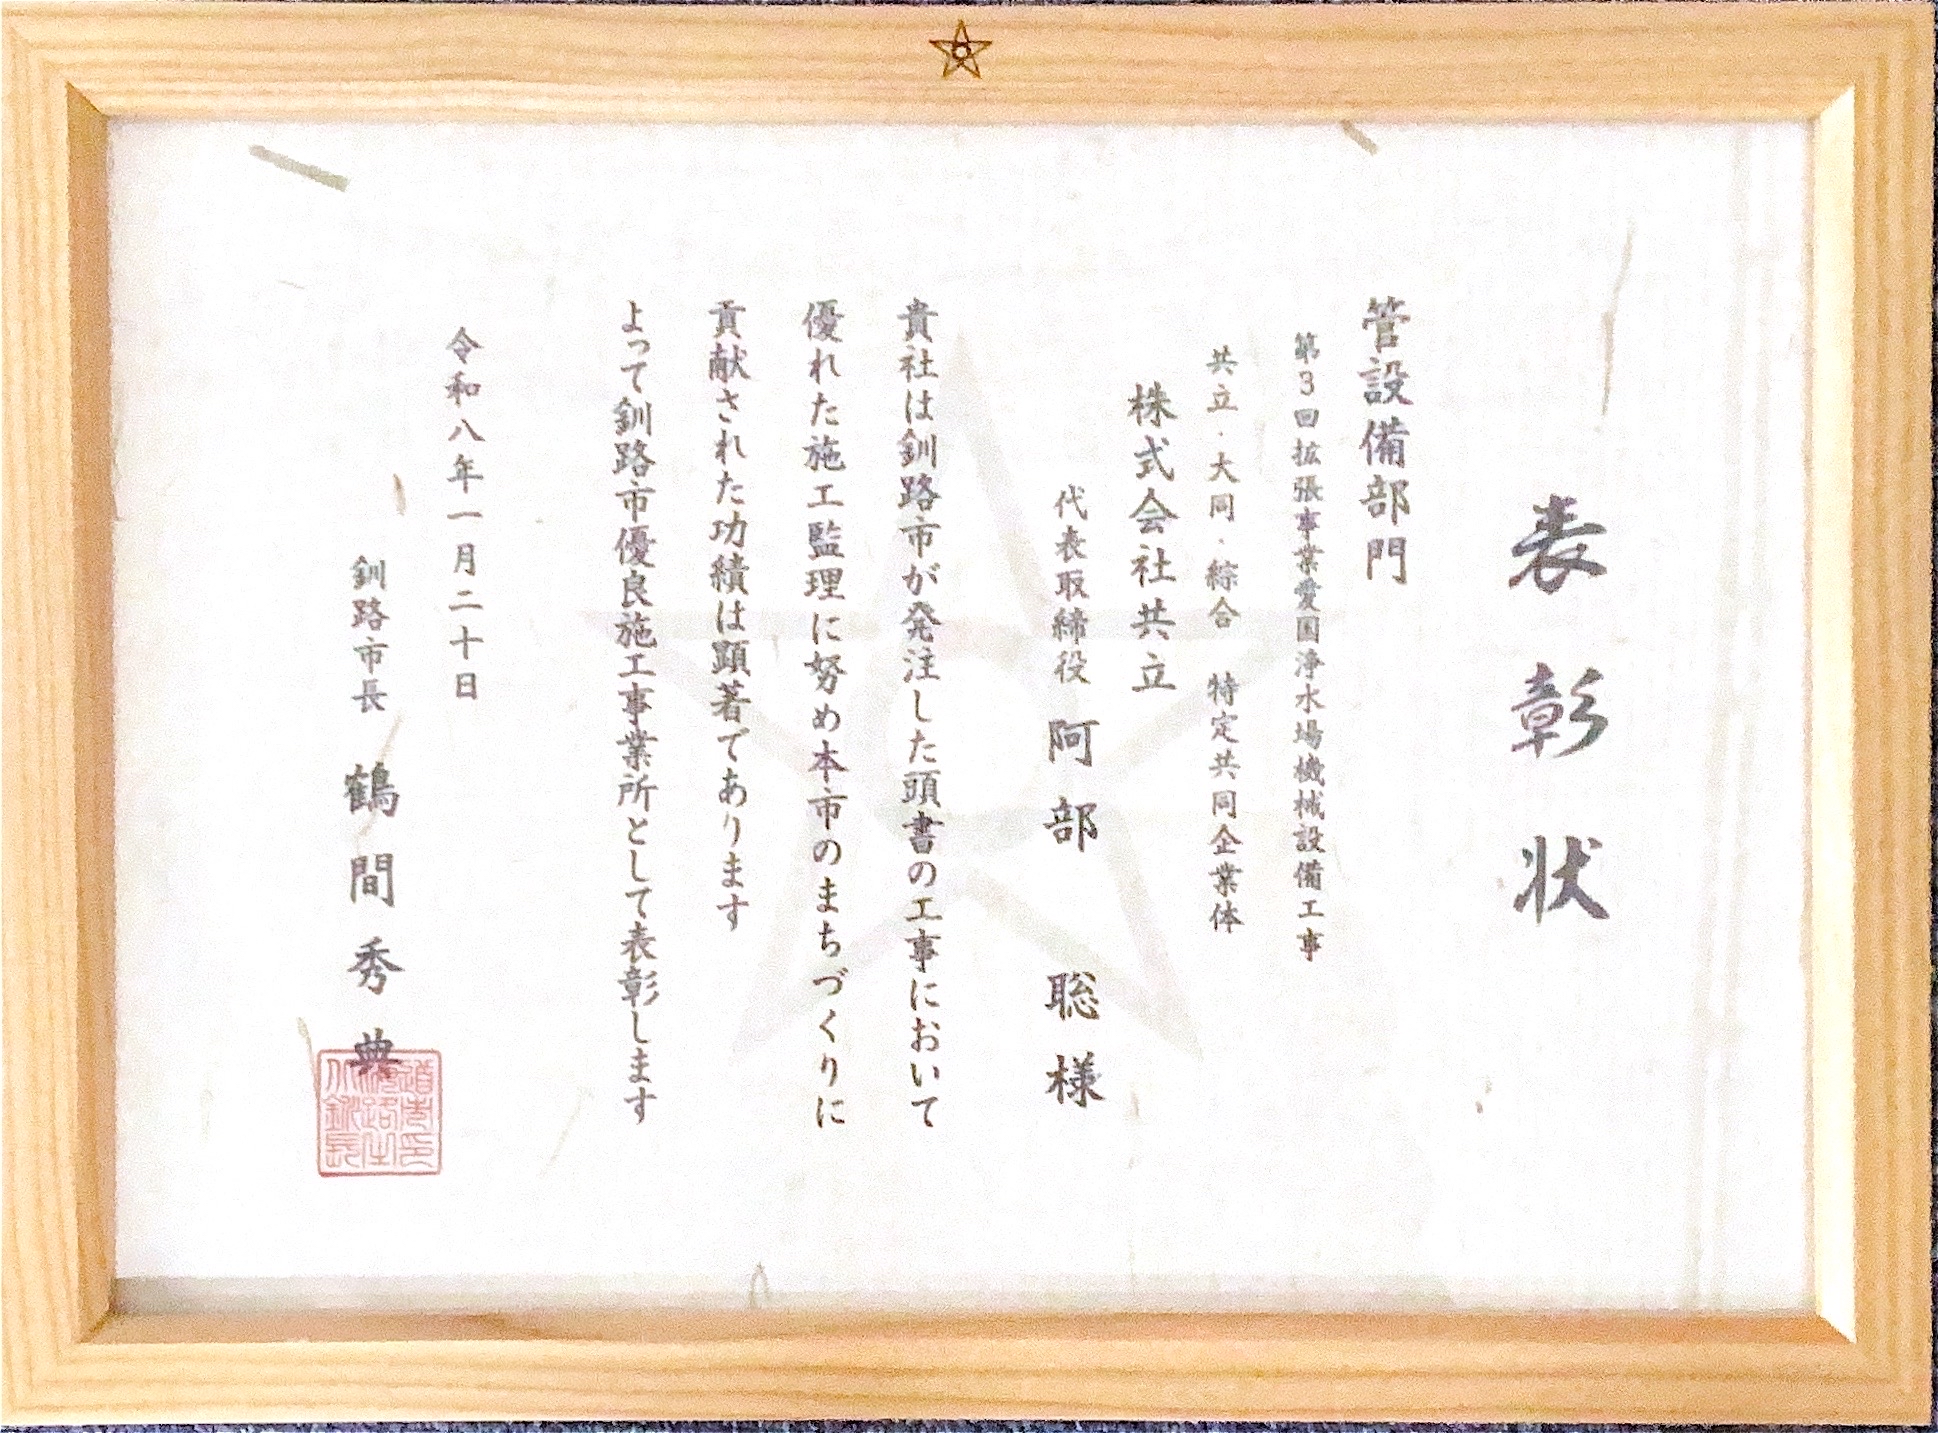 表彰状
管設備部門
第3回拡張事業愛国浄水場機械設備工事
共立・大同・綜合　特定共同企業体
株式会社共立
代表取締役　阿部　聡様
貴社は釧路市が発注した頭書の工事において
優れた施工監理に努め本市のまちづくりに
貢献された功績は顕著であります
よって釧路市優良施工事業所として表彰します
令和八年一月二十日
釧路市長　鶴間秀典